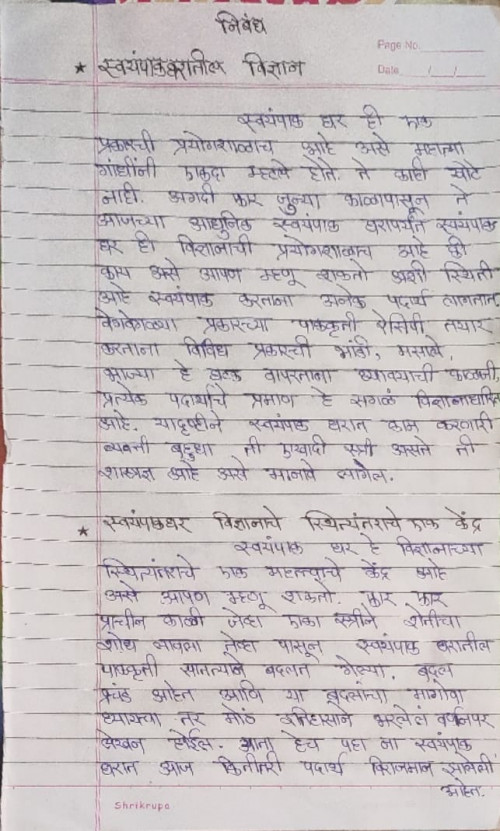 निबंध
Page No.
Date / /
★ स्वयंपाकघरातील विज्ञान
स्वयंपाक घर ही एक
प्रकारची प्रयोगशाळाच आहे असे महात्मा
गांधींनी एकदा म्हटले होते. ते काही खोटे
नाही. अगदी फार जुन्या काळापासून ते
आजच्या आधुनिक स्वयंपाक घरापर्यंत स्वयंपाक
घर ही विज्ञानाची प्रयोगशाळाच आहे की
काय असे आपण म्हणू शकतो अशी स्थिती
आहे स्वयंपाक करताना अनेक पदार्थ लागतात
वेगवेगळ्या प्रकारच्या पाककृती रेसिपी तयार
करताना विविध प्रकारची भांडी, मसाले,
भाज्या हे घटक वापरताना घ्यावयाची काळजी,
प्रत्येक पदार्थाचे प्रमाण हे सगळं विज्ञानाधारित
आहे. यादृष्टीने स्वयंपाक घरात काम करणारी
व्यक्ती बहुधा ती एखादी स्त्री असते ती
शास्त्रज्ञ आहे असे मानावे लागेल.
★ स्वयंपाकघर विज्ञानाचे स्थित्यंतराचे एक केंद्र
स्वयंपाक घर हे विज्ञानाच्या
स्थित्यंतराचे एक महत्त्वाचे केंद्र आहे
असे आपण म्हणू शकतो. फार फार
प्राचीन काळी जेव्हा एका स्त्रीने शेतीचा
शोध लावला तेव्हा पासून स्वयंपाक घरातील
पाककृती सातत्याने बदलत गेल्या. बदल
प्रचंड आहेत आणि या बदलांचा मागोवा
घ्यायचा तर मोठं इतिहासाने भरलेलं वर्णनपर
लेखन होईल. आता हेच पहा ना स्वयंपाक
घरात आज कितीतरी पदार्थ विराजमान झालेली
आहेत.
Shrikrupa